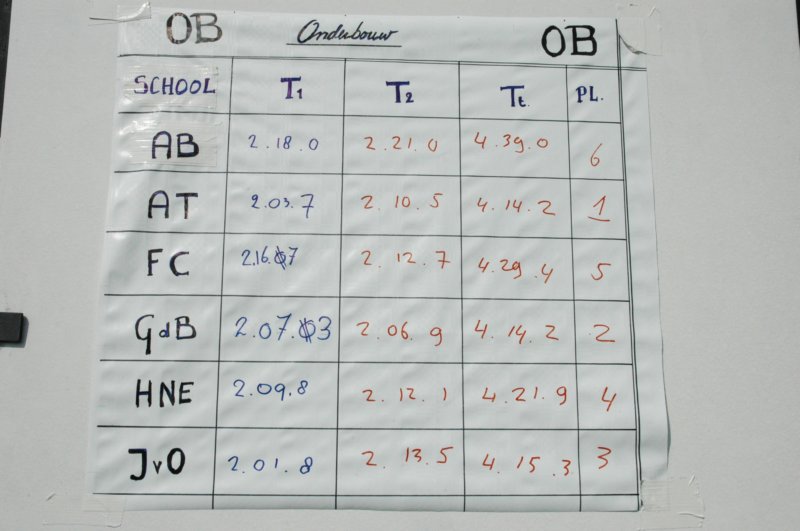 OB Onderbouw OB
SCHOOL T1 T2 Tt. PL.
AB 2.18.0 2.21.0 4.39.0 6
AT 2.03.7 2.10.5 4.14.2 1
FC 2.16.7 2.12.7 4.29.4 5
GdB 2.07.3 2.06.9 4.14.2 2
HNE 2.09.8 2.12.1 4.21.9 4
JvO 2.01.8 2.13.5 4.15.3 3